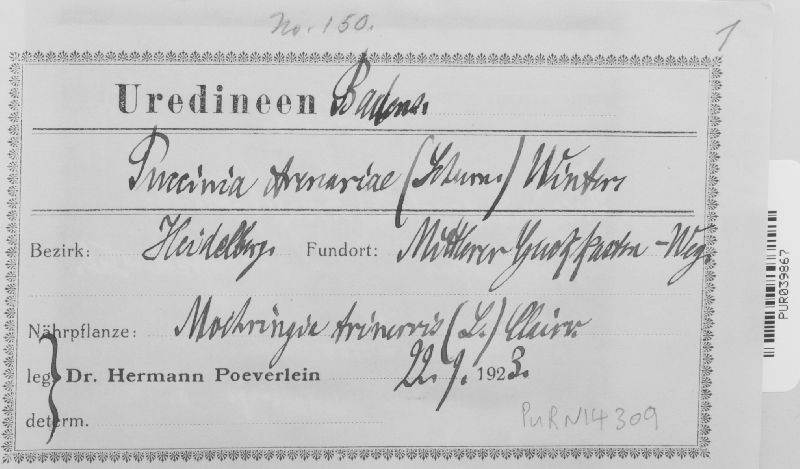 No. 150.
1
Uredineen Badens.
Puccinia Arenariae (Schum.) Winter
Bezirk: Heidelberg. Fundort: Mittlerer -Weg.
Nährpflanze: Moehringia trinervis (L.) Clairv.
leg. Dr. Hermann Poeverlein 22. 9. 1923.
determ.
PUR N14309
PUR039867